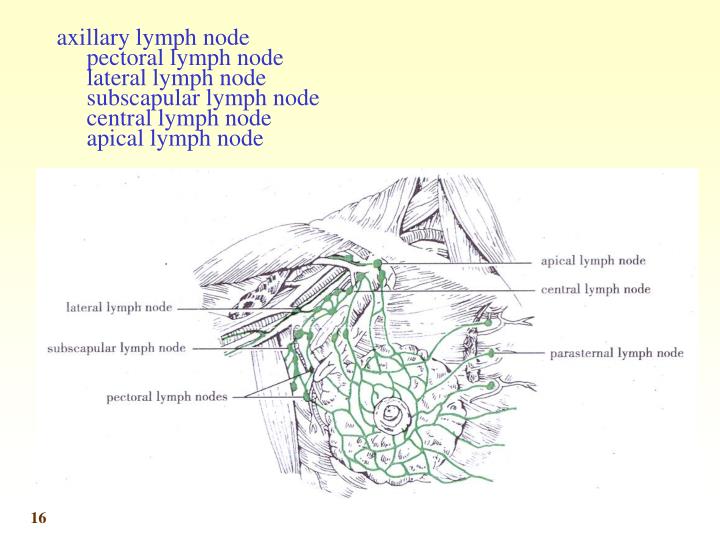 axillary lymph node
pectoral lymph node
lateral lymph node
subscapular lymph node
central lymph node
apical lymph node
apical lymph node
central lymph node
lateral lymph node
subscapular lymph node
parasternal lymph node
pectoral lymph nodes
16